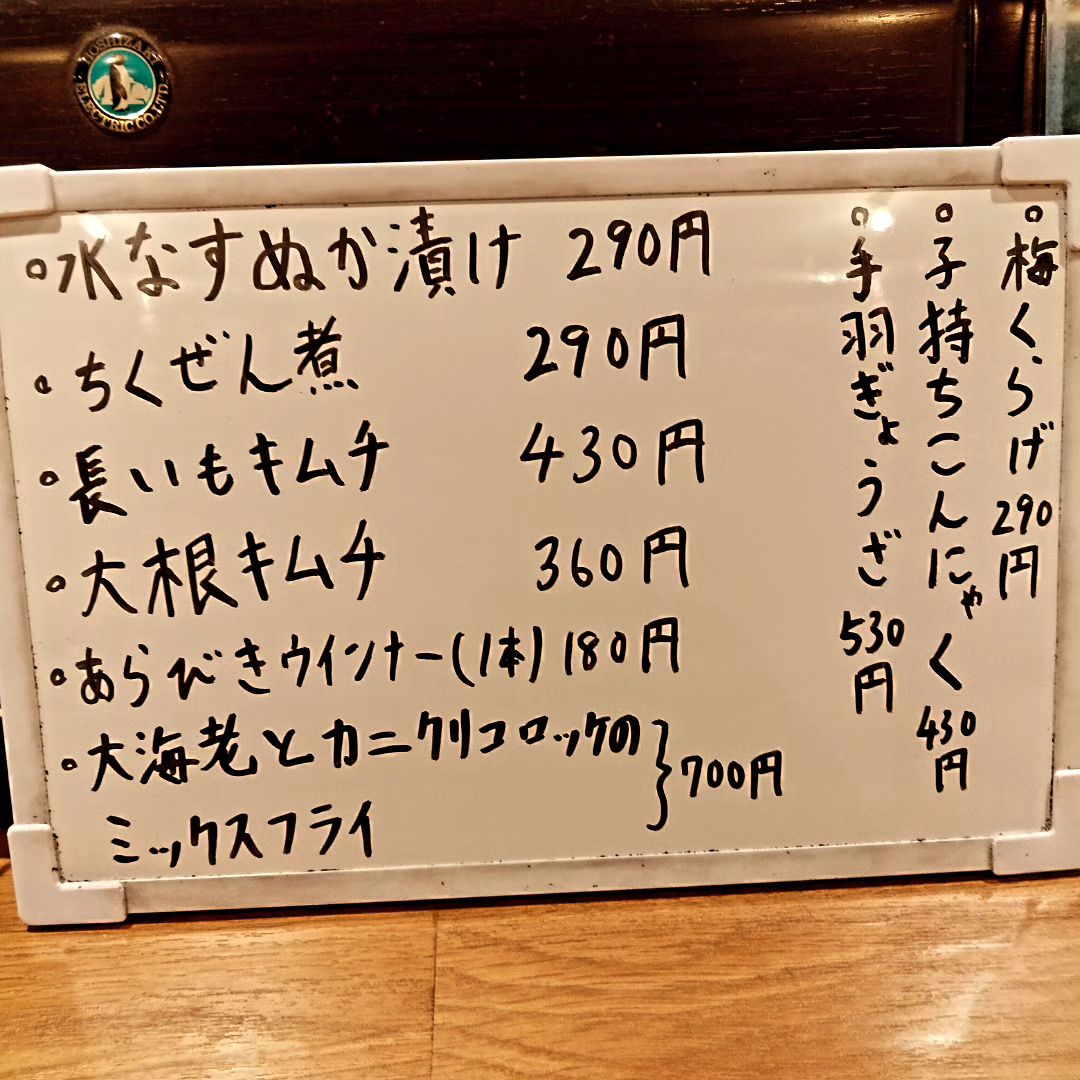 HOSHIZAKI ELECTRIC CO.LTD.
。水なすぬか漬け 290円
。ちくぜん煮 290円
。長いもキムチ 430円
。大根キムチ 360円
。あらびきウインナー(1本) 180円
。大海老とカニクリコロッケの
ミックスフライ } 700円
。梅くらげ 290円
。子持ちこんにゃく 430円
。手羽ぎょうざ 530円